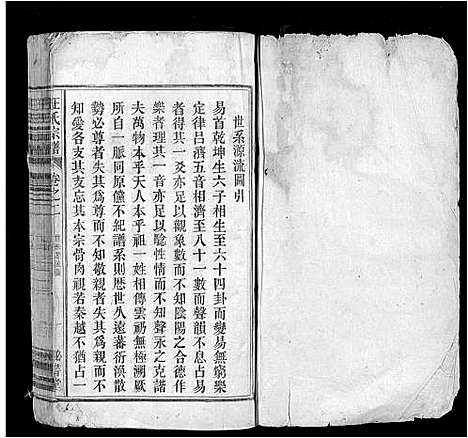 世系源流圖引
易首乾坤生六子相生至六十四卦而變易無窮樂
定律呂濟五音相濟至八十一數而聲韻不息占易
者得其一爻亦足以觀象數而不知陰陽之合德作
樂者理其一音亦足以驗性情而不知聲永之克諧
夫萬物本乎天人本乎祖一姓相傳雲礽無極溯厥
所自一脈同原儻不紀譜系則歷世久遠蕃衍渙散
勢必尊者失其為尊而不知敬親者失其為親而不
知愛各支其支忘其本宗骨肉視若秦越不猶占一
汪氏宗譜
卷之二